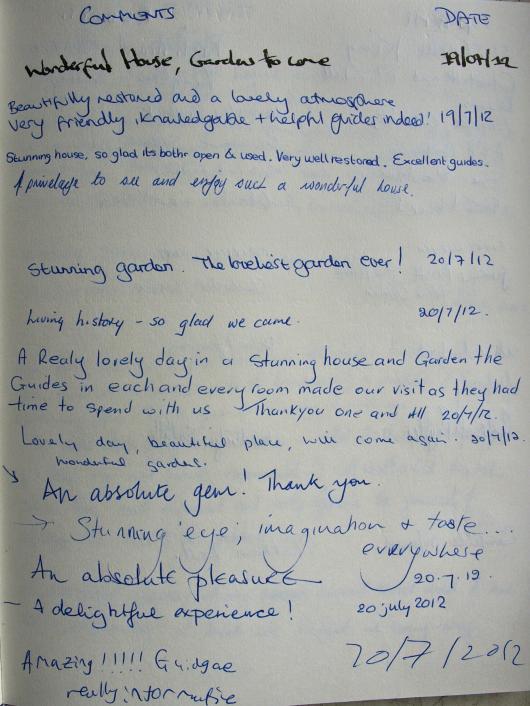 COMMENTS DATE
Wonderful House, Gardens to come 19/07/12
Beautifully restored and a lovely atmosphere
very friendly, knowledgable + helpful guides indeed! 19/7/12
Stunning house, so glad its bothr open & used. Very well restored. Excellent guides.
A privelage to see and enjoy such a wonderful house.
Stunning garden. The loveliest garden ever! 20/7/12
Living history - so glad we came. 20/7/12.
A Realy lovely day in a stunning house and Garden the
Guides in each and every room made our visit as they had
time to spend with us Thankyou one and All 20/7/12.
Lovely day, beautiful place, will come again. 20/7/12.
wonderful garden.
An absolute gem! Thank you.
→ Stunning eye, imagination & taste....
everywhere
An absolute pleasure 20.7.19.
- A delightful experience! 20 july 2012
Amazing!!!!! 20/7/2012
really informative